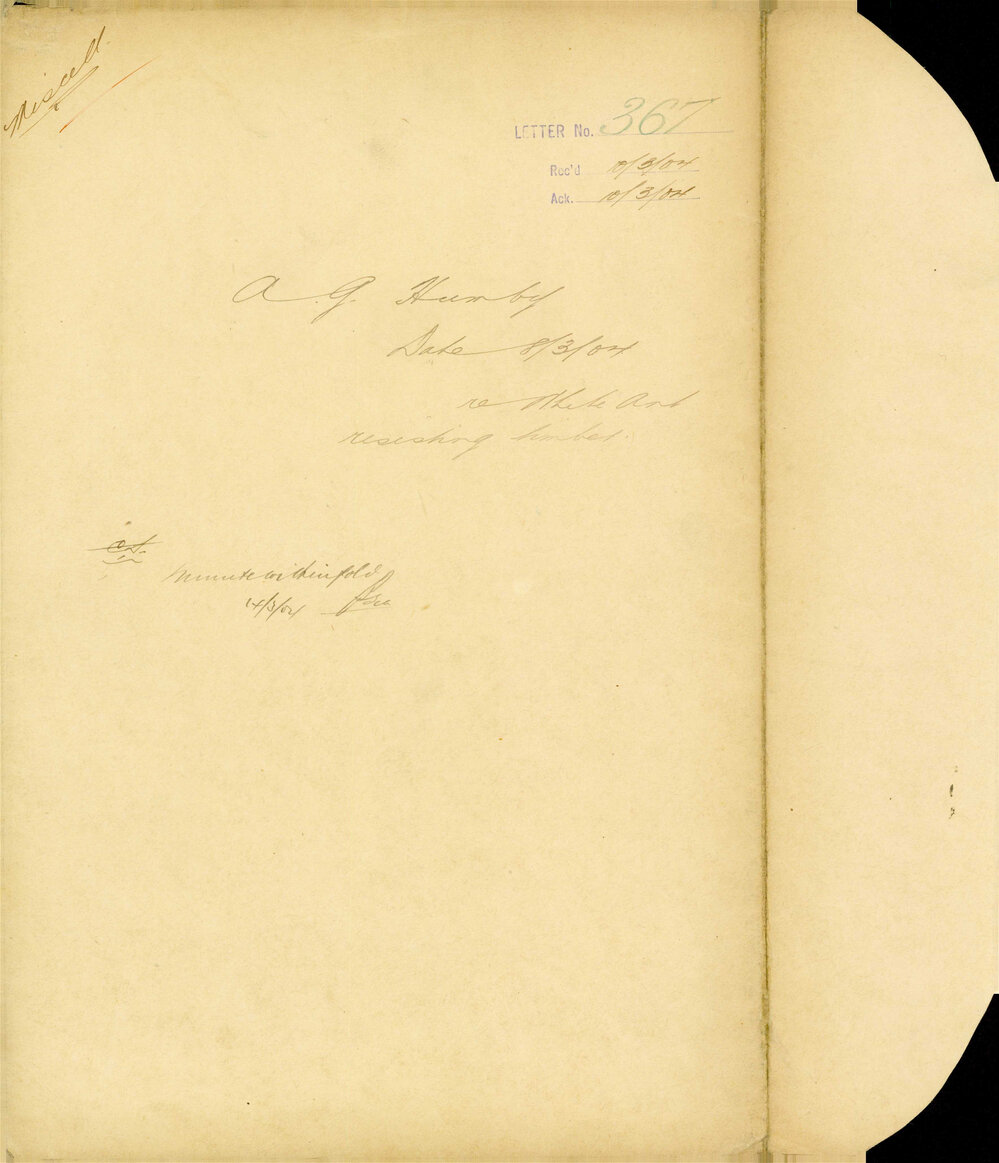 Miscell.
LETTER No. 367
Rec'd 10/3/04
Ack. 10/3/04
A. G. Humby
Date 8/3/04
re White Ant
resisting timber.
Minute within fold
14/3/04